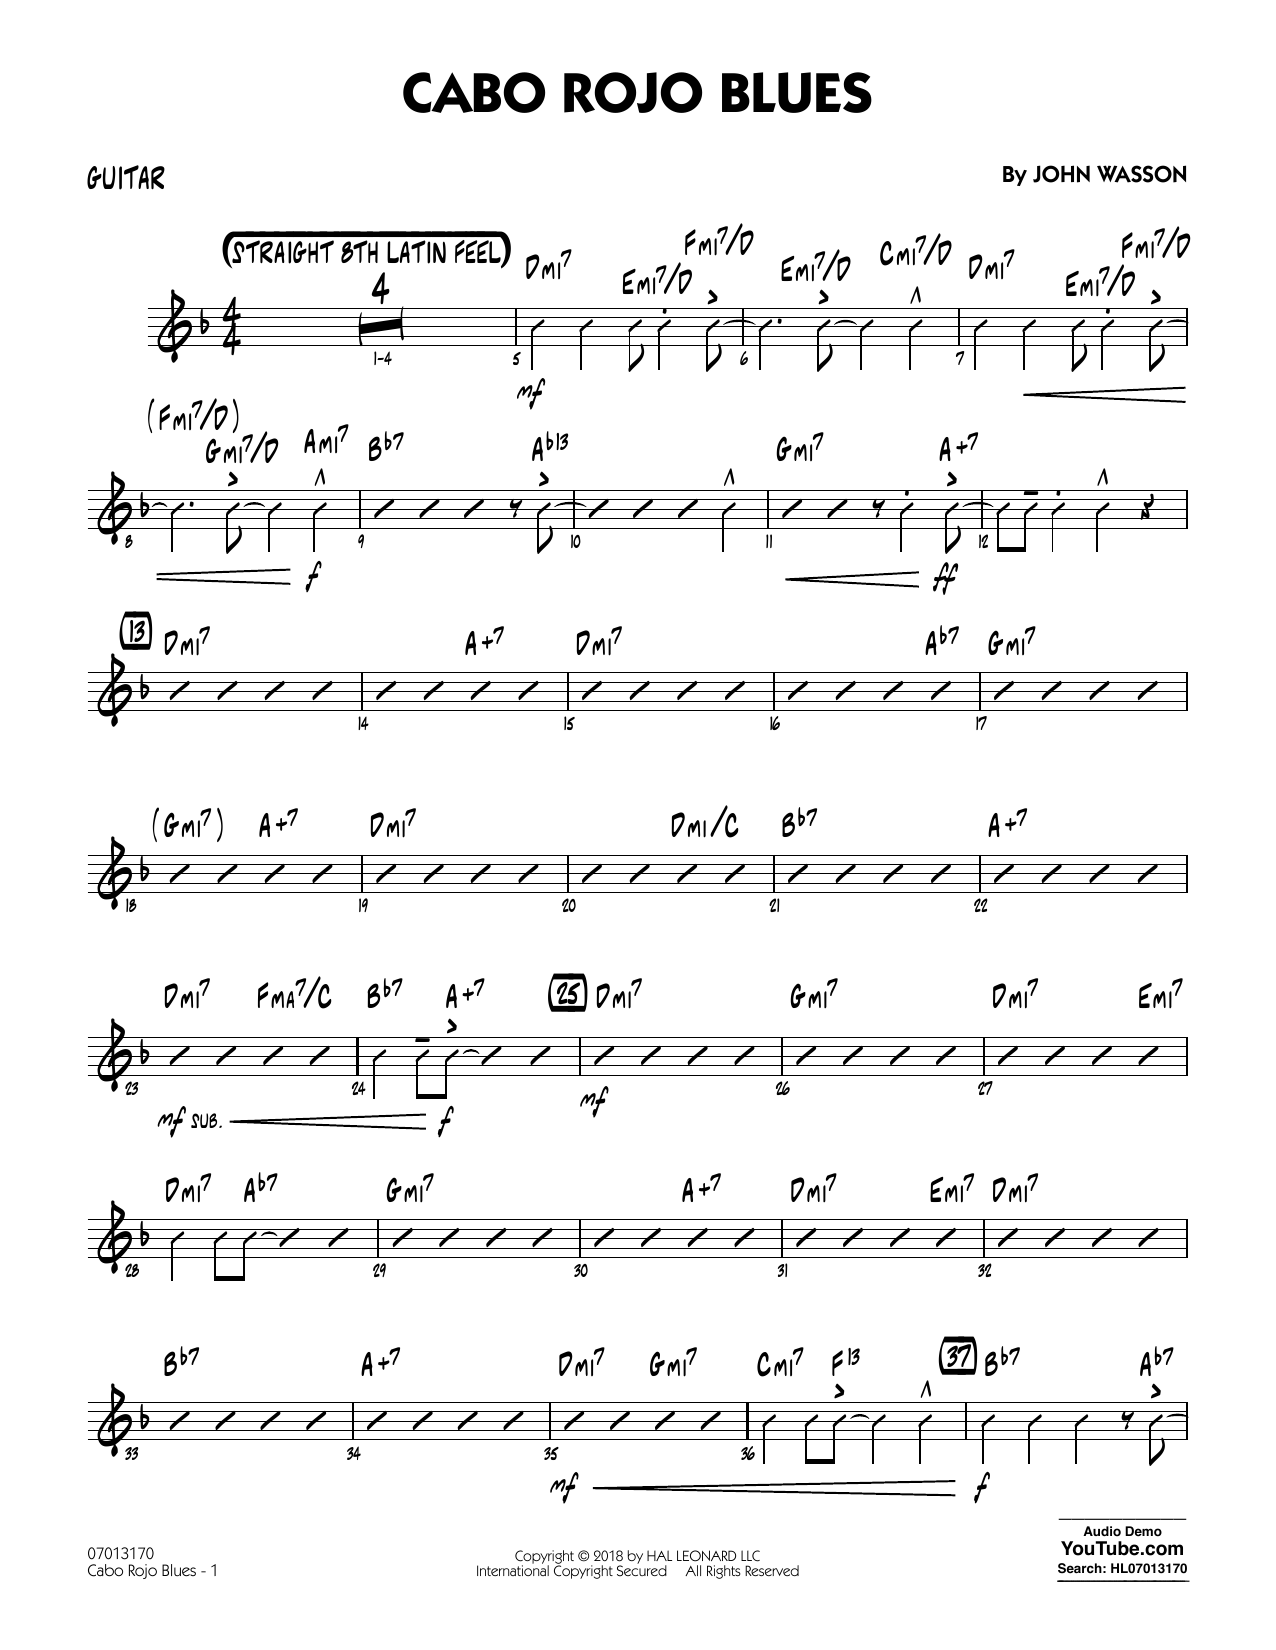 CABO ROJO BLUES
GUITAR
By JOHN WASSON
(STRAIGHT 8TH LATIN FEEL)
DMI7 EMI7/D FMI7/D EMI7/D CMI7/D DMI7 EMI7/D FMI7/D
4
4
4
1-4 5 6 7
mf
(FMI7/D) GMI7/D AMI7 B♭7 A♭13 GMI7 A+7
8 9 10 11 12
f ff
13 DMI7 A+7 DMI7 A♭7 GMI7
14 15 16 17
(GMI7) A+7 DMI7 DMI/C B♭7 A+7
18 19 20 21 22
DMI7 FMA7/C B♭7 A+7 25 DMI7 GMI7 DMI7 EMI7
23 24 26 27
mf SUB. f mf
DMI7 A♭7 GMI7 A+7 DMI7 EMI7 DMI7
28 29 30 31 32
B♭7 A+7 DMI7 GMI7 CMI7 F13 37 B♭7 A♭7
33 34 35 36
mf f
07013170
Cabo Rojo Blues - 1
Copyright © 2018 by HAL LEONARD LLC
International Copyright Secured All Rights Reserved
Audio Demo
YouTube.com
Search: HL07013170